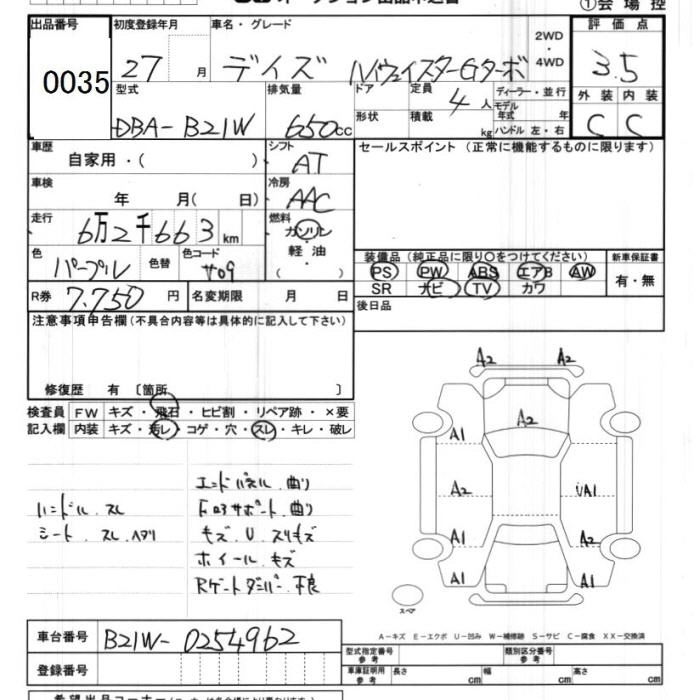 ①会場控
出品番号 0035
初度登録年月 27 月
車名・グレード デイズ ハイウェイスターGターボ
2WD・4WD
評価点 3.5
外装 C 内装 C
型式 DBA-B21W
排気量 650cc
ドア 形状
定員 4人
積載 kg
ディーラー・並行
モデル年式 年
ハンドル 左・右
車歴 自家用・( )
シフト AT
セールスポイント (正常に機能するものに限ります)
車検 年 月( 日)
冷房 AAC
走行 6万2千663km
燃料 ガソリン・軽油・( )
色 パープル 色替 色コード
装備品 (純正品に限り○をつけてください)
PS PW ABS エアB AW
SR ナビ TV カワ
新車保証書 有・無
R券 7.750 円
名変期限 月 日
後日品
注意事項申告欄(不具合内容等は具体的に記入して下さい)
修復歴 有 〔箇所 〕
検査員記入欄
FW キズ・飛石・ヒビ割・リペア跡・×要
内装 キズ・汚レ・コゲ・穴・スレ・キレ・破レ
ハンドル.スレ
シート.スレ.ヘタリ
エンドパネル.曲り
F.コアサポート.曲り
キズ.U.スリキズ
ホイール.キズ
Rゲートダンパー.不良
A2 A2
A2
A1
A2 UA1
A1 A2
A1 A1
スペア
A-キズ E-エクボ U-凹み W-補修跡 S-サビ C-腐食 XX-交換済
車台番号 B21W-0254962
登録番号
型式指定番号 参考
類別区分番号 参考
車庫証明用 参考
長さ cm 幅 cm 高さ cm